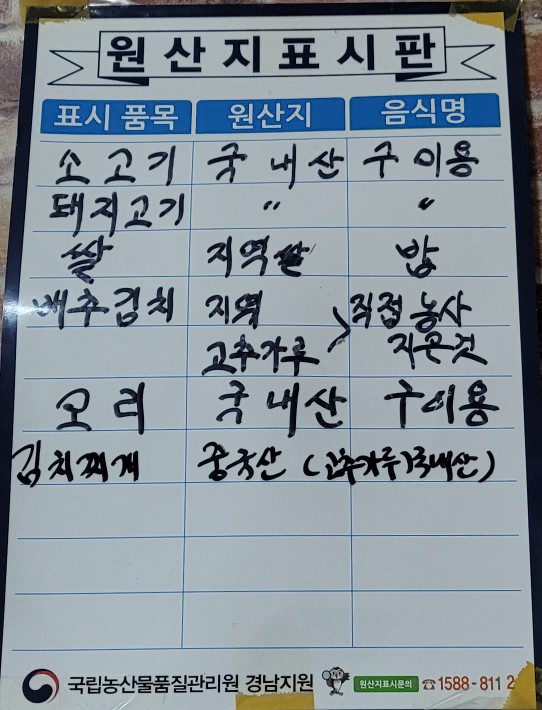 원산지표시판
표시 품목 원산지 음식명
소고기 국내산 구이용
돼지고기 〃 〃
쌀 지역쌀 밥
배추김치 지역 직접 농사
고추가루 > 지은것
오리 국내산 구이용
김치찌개 중국산 (고추가루국내산)
국립농산물품질관리원 경남지원 원산지표시문의 ☎1588-8112